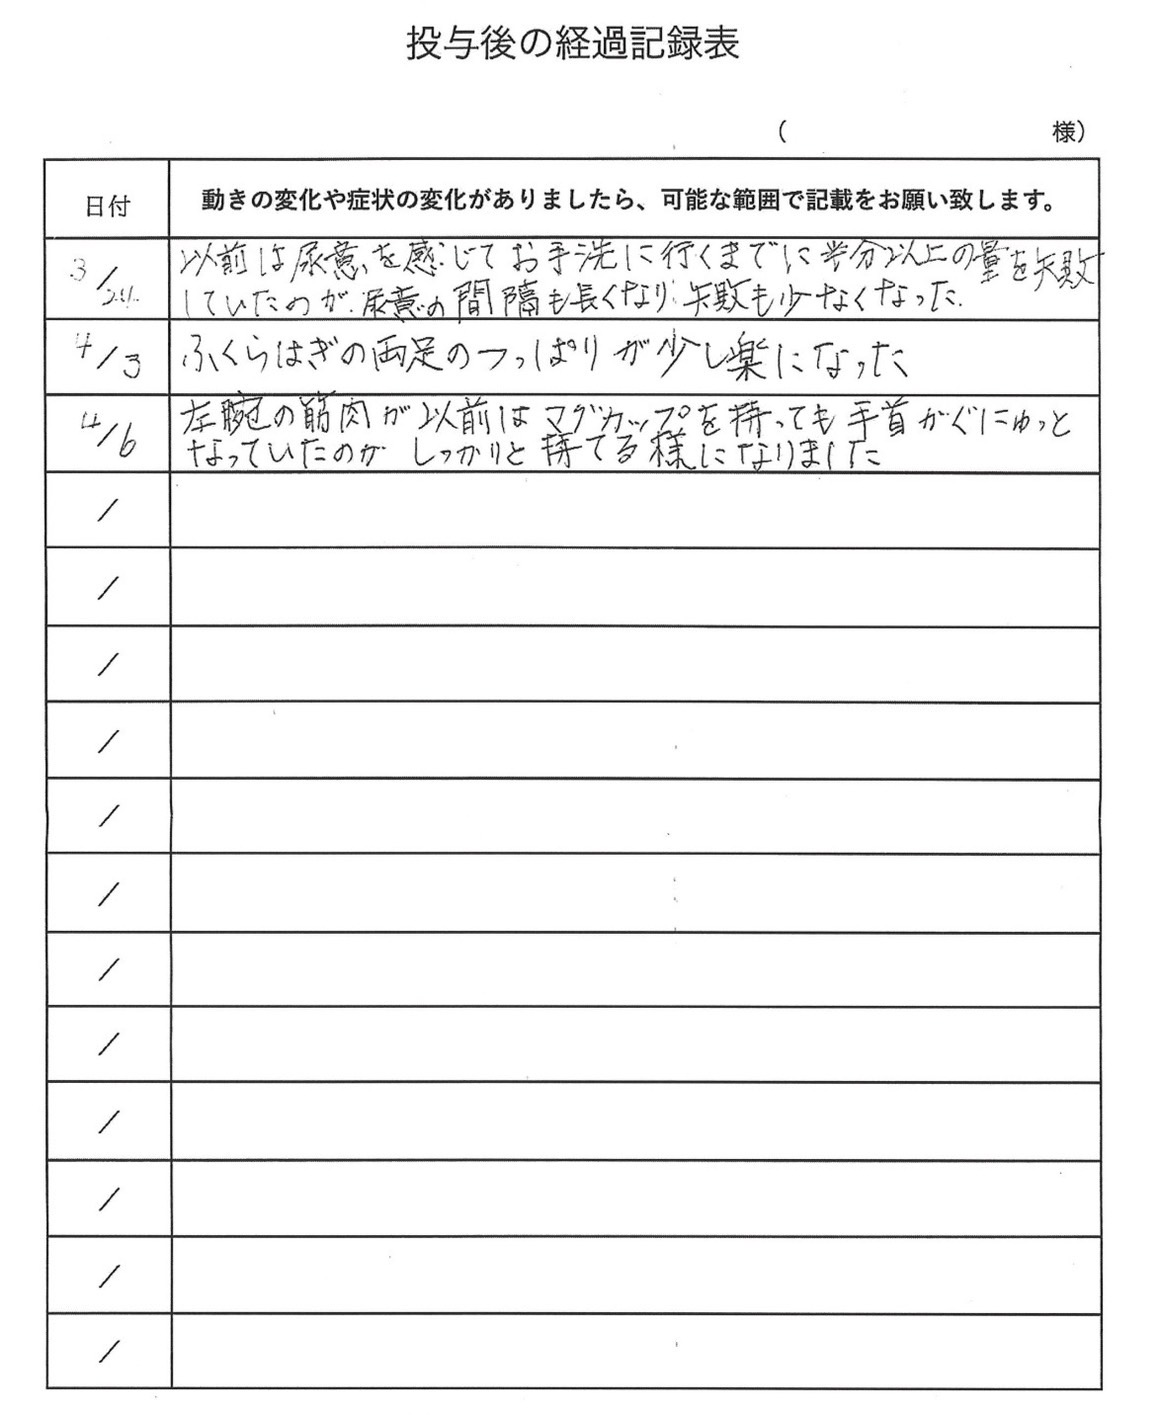 投与後の経過記録表
(　　　　　　様)
日付
動きの変化や症状の変化がありましたら、可能な範囲で記載をお願い致します。
3/24
以前は尿意を感じてお手洗に行くまでに半分以上の量を失敗
していたのが、尿意の間隔も長くなり失敗も少なくなった.
4/3
ふくらはぎの両足のつっぱりが少し楽になった
4/6
左腕の筋肉が以前はマグカップを持っても手首がぐにゅっと
なっていたのが しっかりと持てる様になりました
/
/
/
/
/
/
/
/
/
/
/
/